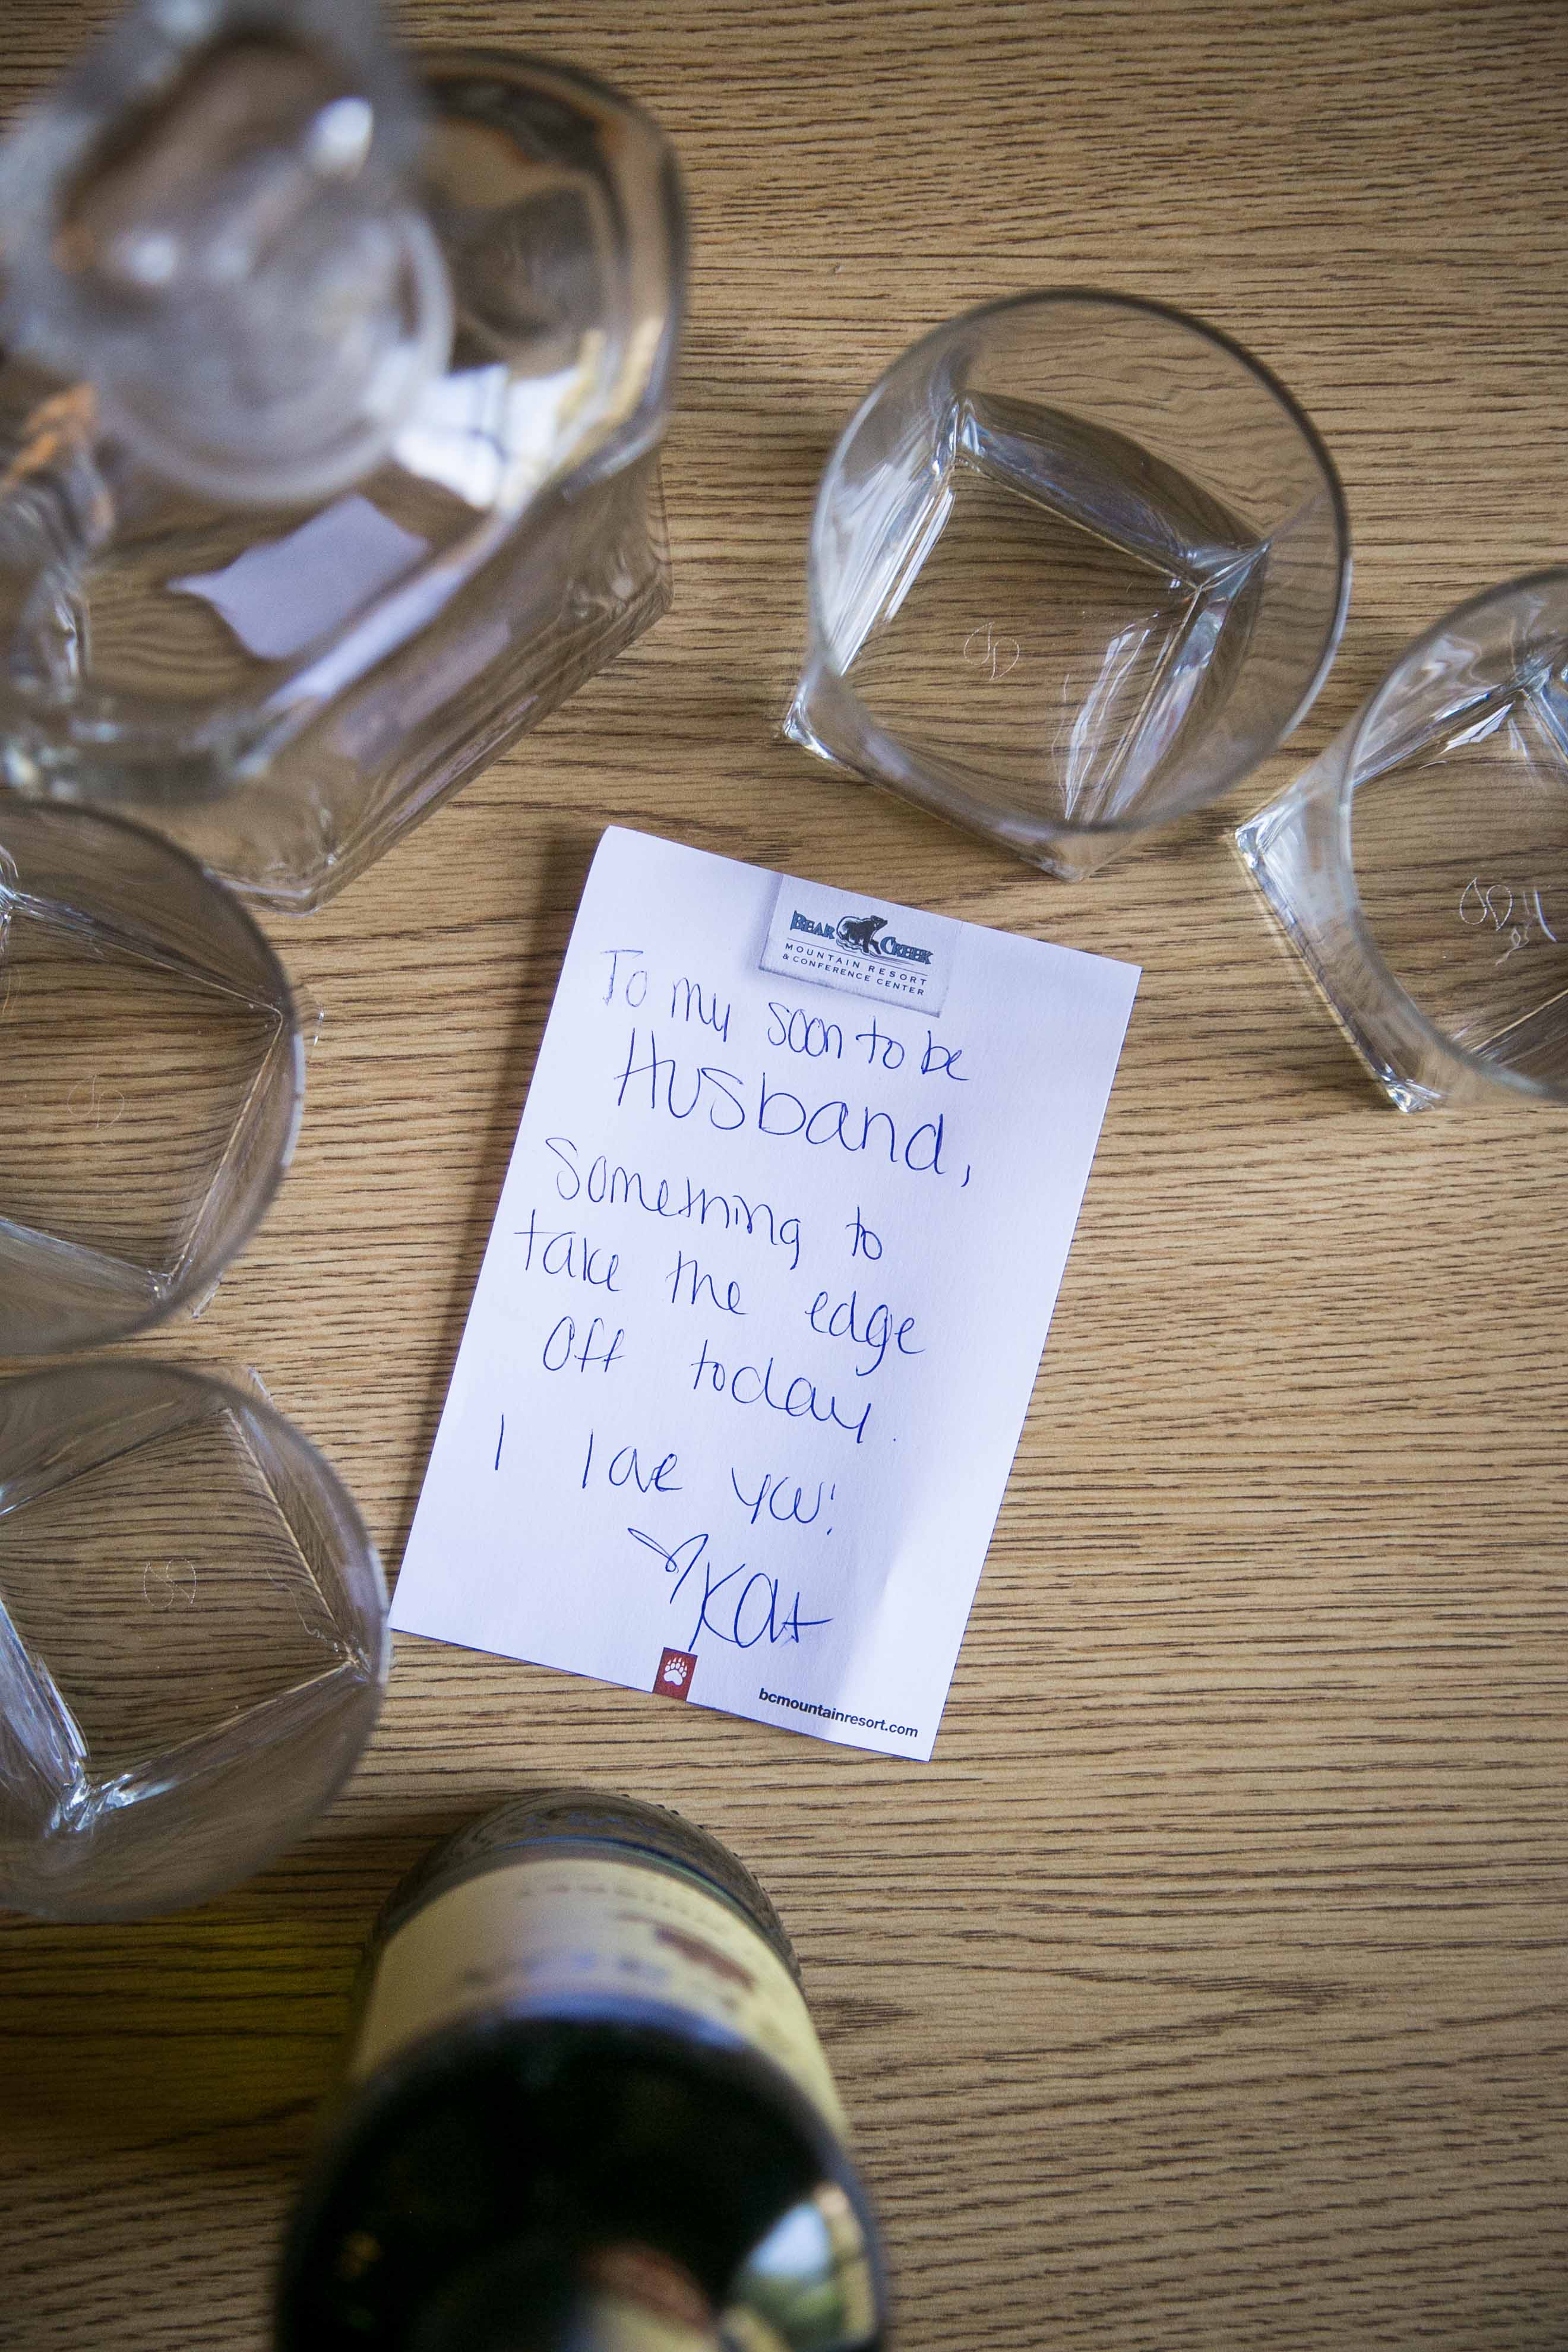 BEAR CREEK
MOUNTAIN RESORT
& CONFERENCE CENTER
To my soon to be
Husband,
Something to
take the edge
Off today.
I love you!
Kat
bcmountainresort.com